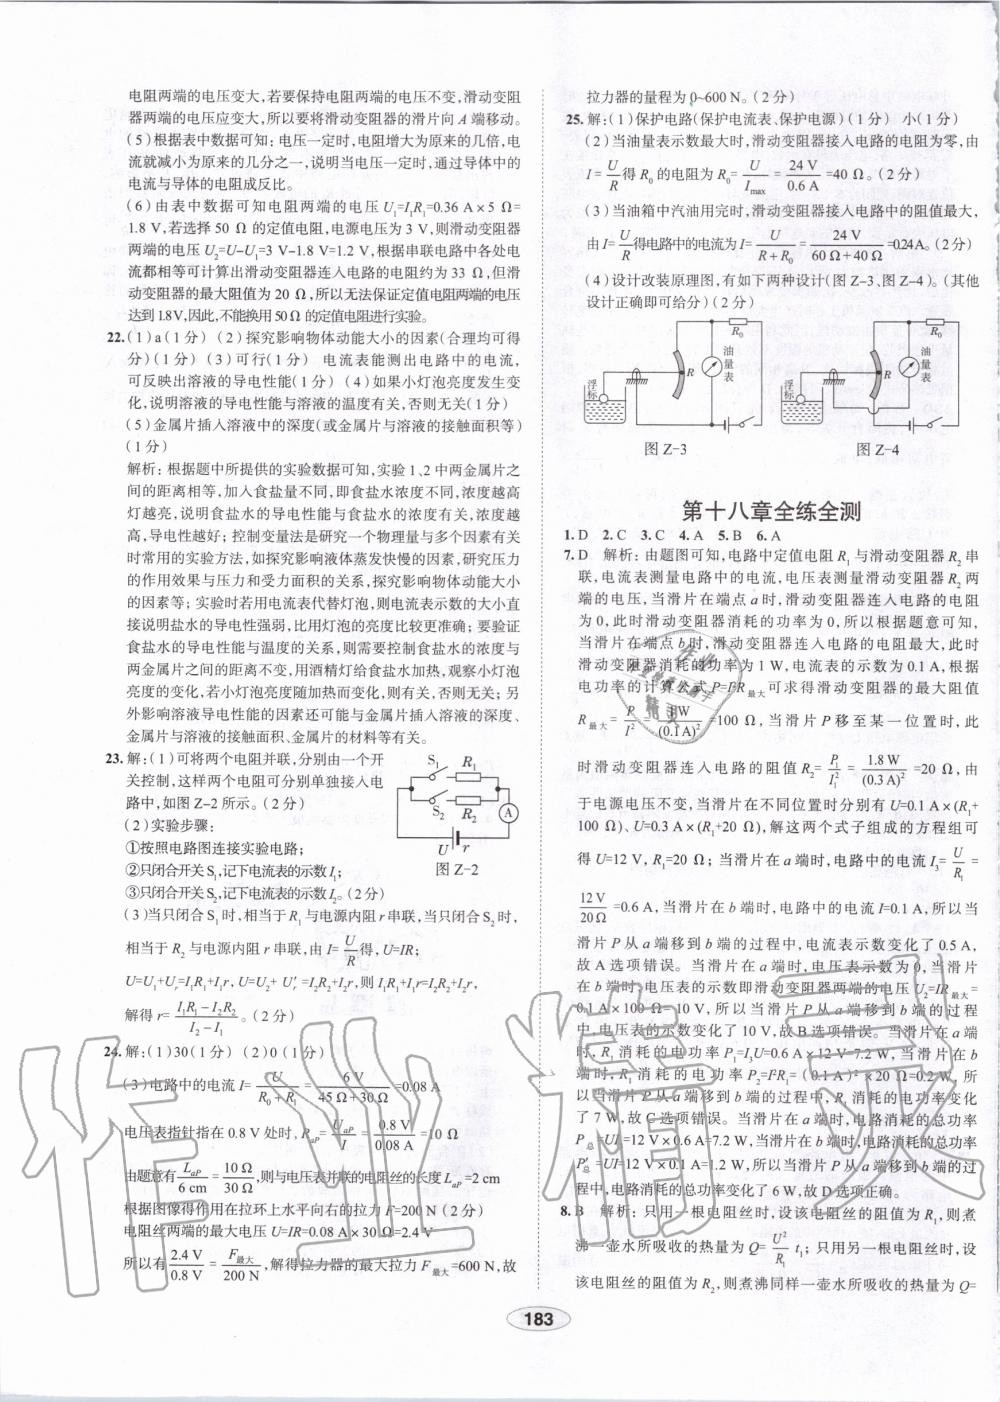 电阻两端的电压变大,若要保持电阻两端的电压不变,滑动变阻
器两端的电压应变大,所以要将滑动变阻器的滑片向 A 端移动。
(5)根据表中数据可知:电压一定时,电阻增大为原来的几倍,电
流就减小为原来的几分之一,说明当电压一定时,通过导体中的
电流与导体的电阻成反比。
(6)由表中数据可知电阻两端的电压 U₁=I₁R₁=0.36 A×5 Ω=
1.8 V,若选择 50 Ω 的定值电阻,电源电压为 3 V,则滑动变阻器
两端的电压 U₂=U-U₁=3 V-1.8 V=1.2 V,根据串联电路中各处电
流都相等可计算出滑动变阻器连入电路的电阻约为 33 Ω,但滑
动变阻器的最大阻值为 20 Ω,所以无法保证定值电阻两端的电压
达到 1.8V,因此,不能换用50 Ω的定值电阻进行实验。
22.(1)a(1分) (2)探究影响物体动能大小的因素(合理均可得
分)(1分) (3)可行(1分) 电流表能测出电路中的电流,
可反映出溶液的导电性能(1分) (4)如果小灯泡亮度发生变
化,说明溶液的导电性能与溶液的温度有关,否则无关(1分)
(5)金属片插入溶液中的深度(或金属片与溶液的接触面积等)
(1分)
解析:根据题中所提供的实验数据可知,实验1、2中两金属片之
间的距离相等,加入食盐量不同,即食盐水浓度不同,浓度越高
灯越亮,说明食盐水的导电性能与食盐水的浓度有关,浓度越高,
导电性越好;控制变量法是研究一个物理量与多个因素有关
时常用的实验方法,如探究影响液体蒸发快慢的因素,研究压力
的作用效果与压力和受力面积的关系,探究影响物体动能大小
的因素等;实验时若用电流表代替灯泡,则电流表示数的大小直
接说明盐水的导电性强弱,比用灯泡的亮度比较更准确;要验证
食盐水的导电性能与温度的关系,则需要控制食盐水的浓度与
两金属片之间的距离不变,用酒精灯给食盐水加热,观察小灯泡
亮度的变化,若小灯泡亮度随加热而变化,则有关,否则无关;另
外影响溶液导电性能的因素还可能与金属片插入溶液的深度、
金属片与溶液的接触面积、金属片的材料等有关。
23.解:(1)可将两个电阻并联,分别由一个开
关控制,这样两个电阻可分别单独接入电
路中,如图Z-2所示。(2分)
(2)实验步骤:
①按照电路图连接实验电路;
②只闭合开关S₁,记下电流表的示数I₁;
③只闭合开关S₂,记下电流表的示数I₂。(2分)
S₁ R₁
S₂ R₂ A
U r
图Z-2
(3)当只闭合S₁时,相当于R₁与电源内阻r串联,当只闭合S₂时,
相当于R₂与电源内阻r串联,由I=U/R得,U=IR;
U=U₁+Uᵣ=I₁R₁+I₁r,U=U₂+U′ᵣ=I₂R₂+I₂r,则I₁R₁+I₁r=I₂R₂+I₂r,
解得r=(I₁R₁-I₂R₂)/(I₂-I₁)。(2分)
24.解:(1)30(1分) (2)0(1分)
(3)电路中的电流I=U/(R₀+R₁)=6 V/(45 Ω+30 Ω)=0.08 A
电压表指针指在0.8 V处时,R_aP=U_aP/I=0.8 V/0.08 A=10 Ω
由题意有L_aP/6 cm=10 Ω/30 Ω,则与电压表并联的电阻丝的长度L_aP=2 cm
根据图像得作用在拉环上水平向右的拉力F=200 N(2分)
电阻丝两端的最大电压U=IR=0.08 A×30 Ω=2.4 V
所以有2.4 V/0.8 V=F最大/200 N,解得拉力器的最大拉力F最大=600 N,故
拉力器的量程为0~600 N。(2分)
25.解:(1)保护电路(保护电流表、保护电源)(1分) 小(1分)
(2)当油量表示数最大时,滑动变阻器接入电路的电阻为零,由
I=U/R得R₀的电阻为R₀=U/Imax=24 V/0.6 A=40 Ω。(2分)
(3)当油箱中汽油用完时,滑动变阻器接入电路中的阻值最大,
由I=U/R得电路中的电流为I=U/(R+R₀)=24 V/(60 Ω+40 Ω)=0.24A。(2分)
(4)设计改装原理图,有如下两种设计(图Z-3、图Z-4)。(其他
设计正确即可给分)(2分)
R₀ 油量表 R 浮标
图Z-3
R₀ 油量表 R 浮标
图Z-4
第十八章全练全测
1.D 2.C 3.C 4.A 5.B 6.A
7.D 解析:由题图可知,电路中定值电阻R₁与滑动变阻器R₂串
联,电流表测量电路中的电流,电压表测量滑动变阻器R₂两
端的电压,当滑片在端点a时,滑动变阻器连入电路的电阻
为0,此时滑动变阻器消耗的功率为0,所以根据题意可知,
当滑片在端点b时,滑动变阻器连入电路的电阻最大,此时
滑动变阻器消耗的功率为1 W,电流表的示数为0.1 A,根据
电功率的计算公式P=I²R最大可求得滑动变阻器的最大阻值
R最大=P/I²=1W/(0.1 A)²=100 Ω,当滑片P移至某一位置时,此
时滑动变阻器连入电路的阻值R₂=P₁/I₁²=1.8 W/(0.3 A)²=20 Ω,由
于电源电压不变,当滑片在不同位置时分别有U=0.1 A×(R₁+
100 Ω)、U=0.3 A×(R₁+20 Ω),解这两个式子组成的方程组可
得U=12 V,R₁=20 Ω;当滑片在a端时,电路中的电流I₃=U/R₁=
12 V/20 Ω=0.6 A,当滑片在b端时,电路中的电流I=0.1 A,所以当
滑片P从a端移到b端的过程中,电流表示数变化了0.5 A,
故A选项错误。当滑片在a端时,电压表示数为0,当滑片
在b端时,电压表的示数即滑动变阻器两端的电压U₂=IR最大=
0.1 A×100 Ω=10 V,所以当滑片P从a端移到b端的过程
中,电压表的示数变化了10 V,故B选项错误。当滑片在a端
时,R₁消耗的电功率P₁=I₃U=0.6 A×12 V=7.2 W,当滑片在b端
时,R₁消耗的电功率P₂=I²R₁=(0.1 A)²×20 Ω=0.2 W,所以
当滑片P从a端移到b端的过程中,R₁消耗的电功率变化
了7 W,故C选项错误。当滑片在a端时,电路消耗的总功率
P总=UI₃=12 V×0.6 A=7.2 W,当滑片在b端时,电路消耗的总功率
P′总=UI=12 V×0.1 A=1.2 W,所以当滑片P从a端移到b端的过
程中,电路消耗的总功率变化了6 W,故D选项正确。
8.B 解析:只用一根电阻丝时,设该电阻丝的阻值为R₁,则煮
沸一壶水所吸收的热量为Q=U²/R₁ t₁;只用另一根电阻丝时,设
该电阻丝的阻值为R₂,则煮沸同样一壶水所吸收的热量为Q=
183
作业精灵